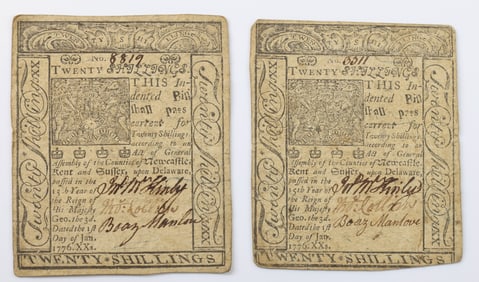 No. 8819
TWENTY SHILLINGS.
THIS In-
dented Bill
shall pass
current for
Twenty Shillings,
according to an
Act of General
Assembly of the Counties of Newcastle,
Kent and Sussex, upon Delaware,
passed in the
15th Year of
the Reign of
His Majesty
Geo. the 3d.
Dated the 1st
Day of Jan.
1776. XXs.
Jno. McKinly
Boaz Manlove
Twenty Shillings XX
Twenty Shillings XX
TWENTY SHILLINGS
No. 3511
TWENTY SHILLINGS.
THIS In-
dented Bill
shall pass
current for
Twenty Shillings,
according to an
Act of General
Assembly of the Counties of Newcastle,
Kent and Sussex, upon Delaware,
passed in the
15th Year of
the Reign of
His Majesty
Geo. the 3d.
Dated the 1st
Day of Jan.
1776. XXs.
Jno. McKinly
Boaz Manlove
Twenty Shillings XX
Twenty Shillings XX
TWENTY SHILLINGS